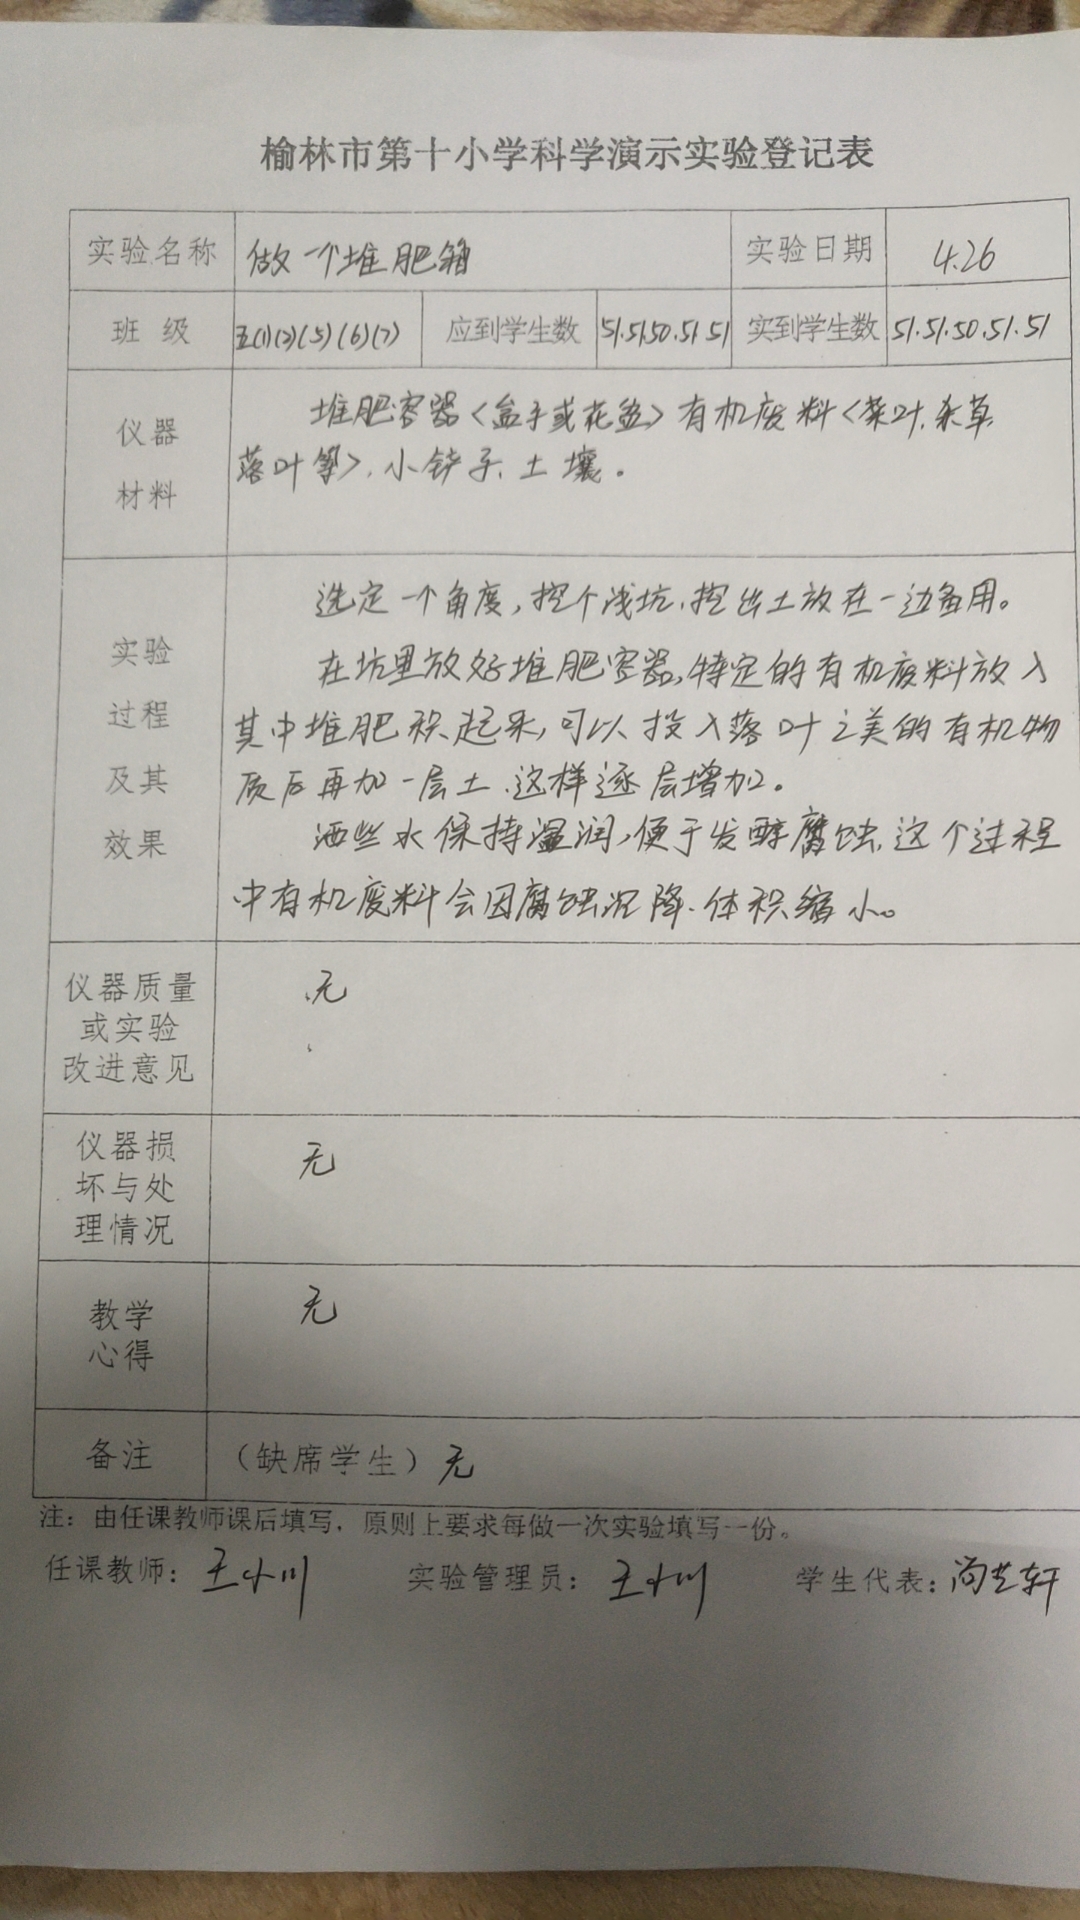 榆林市第十小学科学演示实验登记表
实验名称 做一个堆肥箱 实验日期 4.26
班 级 五(1)(2)(5)(6)(7) 应到学生数 51.51.50.51.51 实到学生数 51.51.50.51.51
仪器
材料
堆肥容器<盒子或花盆>有机废料<菜叶.杂草
落叶等>.小铲子.土壤。
实验
过程
及其
效果
选定一个角度,挖个浅坑.挖出土放在一边备用。
在坑里放好堆肥容器,特定的有机废料放入
其中堆肥积起来,可以投入落叶之美的有机物
质后再加一层土.这样逐层增加。
洒些水保持湿润,便于发酵腐蚀.这个过程
中有机废料会因腐蚀沉降.体积缩小。
仪器质量
或实验
改进意见
无
仪器损
坏与处
理情况
无
教学
心得
无
备注 (缺席学生) 无
注：由任课教师课后填写，原则上要求每做一次实验填写一份。
任课教师：王小川 实验管理员：王小川 学生代表：尚艺轩